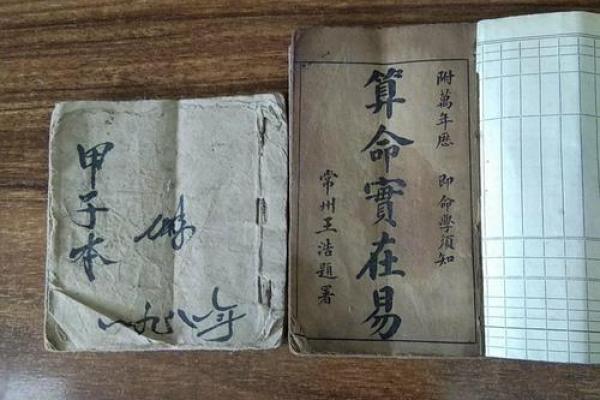 甲子本
一九八年
附萬年厯 即命學須知
算命實在易
常州王浩題署